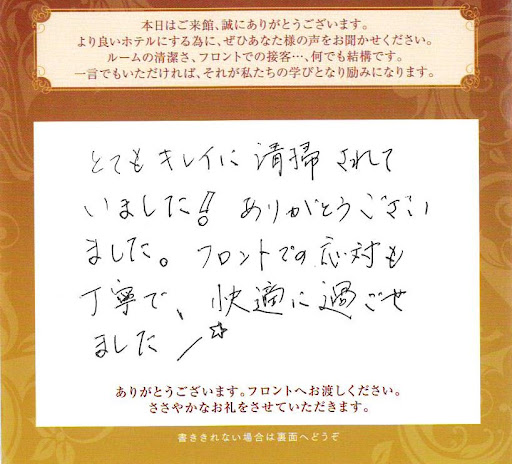 本日はご来館、誠にありがとうございます。
より良いホテルにする為に、ぜひあなた様の声をお聞かせください。
ルームの清潔さ、フロントでの接客…、何でも結構です。
一言でもいただければ、それが私たちの学びとなり励みになります。
とてもキレイに清掃されて
いました!! ありがとうござい
ました。フロントでの応対も
丁寧で、快適に過ごせ
ました☆
ありがとうございます。フロントへお渡しください。
ささやかなお礼をさせていただきます。
書ききれない場合は裏面へどうぞ